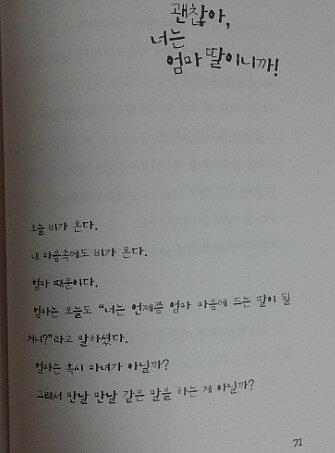 괜찮아,
너는
엄마 딸이니까!
오늘 비가 온다.
내 마음속에도 비가 온다.
엄마 때문이다.
엄마는 오늘도 “너는 언제쯤 엄마 마음에 드는 딸이 될
거니?”라고 말하셨다.
엄마는 혹시 마녀가 아닐까?
그래서 만날 만날 같은 말을 하는 게 아닐까?
71